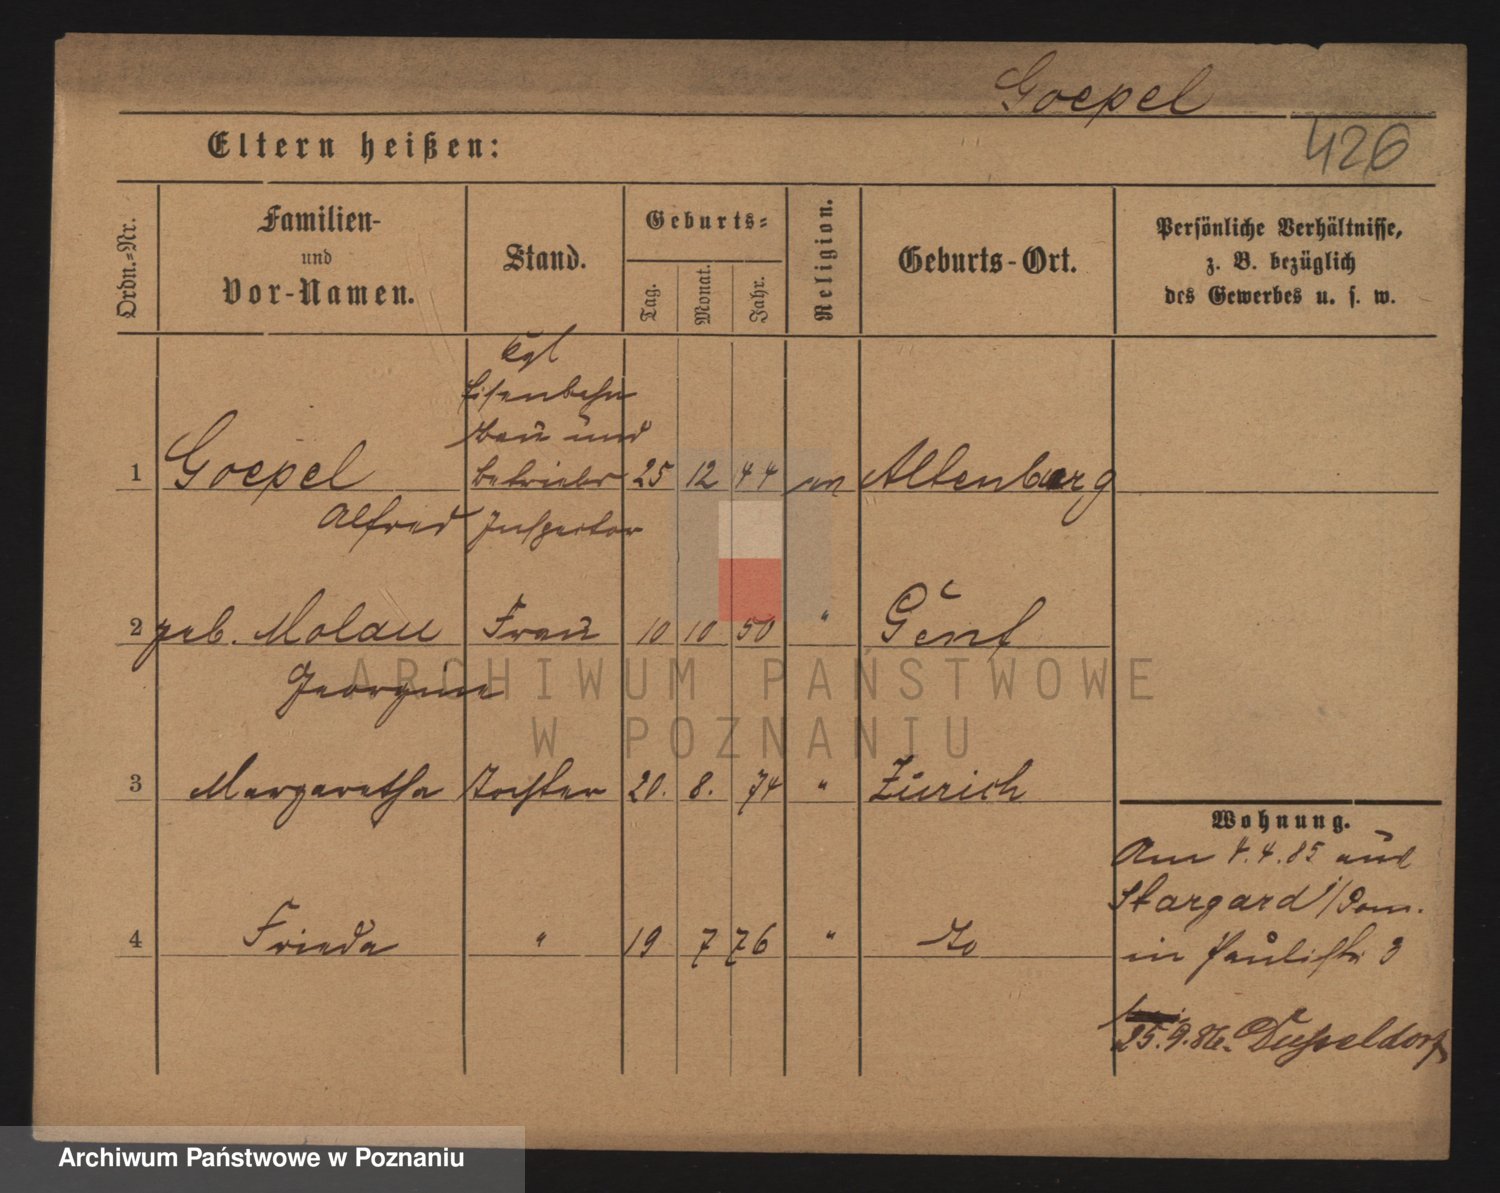 Goepel
426
Eltern heißen:
Ordn.-Nr.
Familien-
und
Vor-Namen.
Stand.
Geburts-
Tag.
Monat.
Jahr.
Religion.
Geburts-Ort.
Persönliche Verhältnisse,
z. B. bezüglich
des Gewerbes u. s. w.
Kgl
Eisenbahn
Bau und
1 Goepel Betriebs 25 12 44 ev Altenburg
Alfred Inspector
2 geb. Molau Frau 10 10 50 " Genf
Georgine
ARCHIWUM PAŃSTWOWE
W POZNANIU
3 Margaretha Tochter 20. 8. 74 " Zürich
Wohnung.
Am 4.4.85 aus
Stargard i/Pom.
4 Frieda " 19 7 76 " Do
in Paulistr 3
25.9.86. Düsseldorf
Archiwum Państwowe w Poznaniu